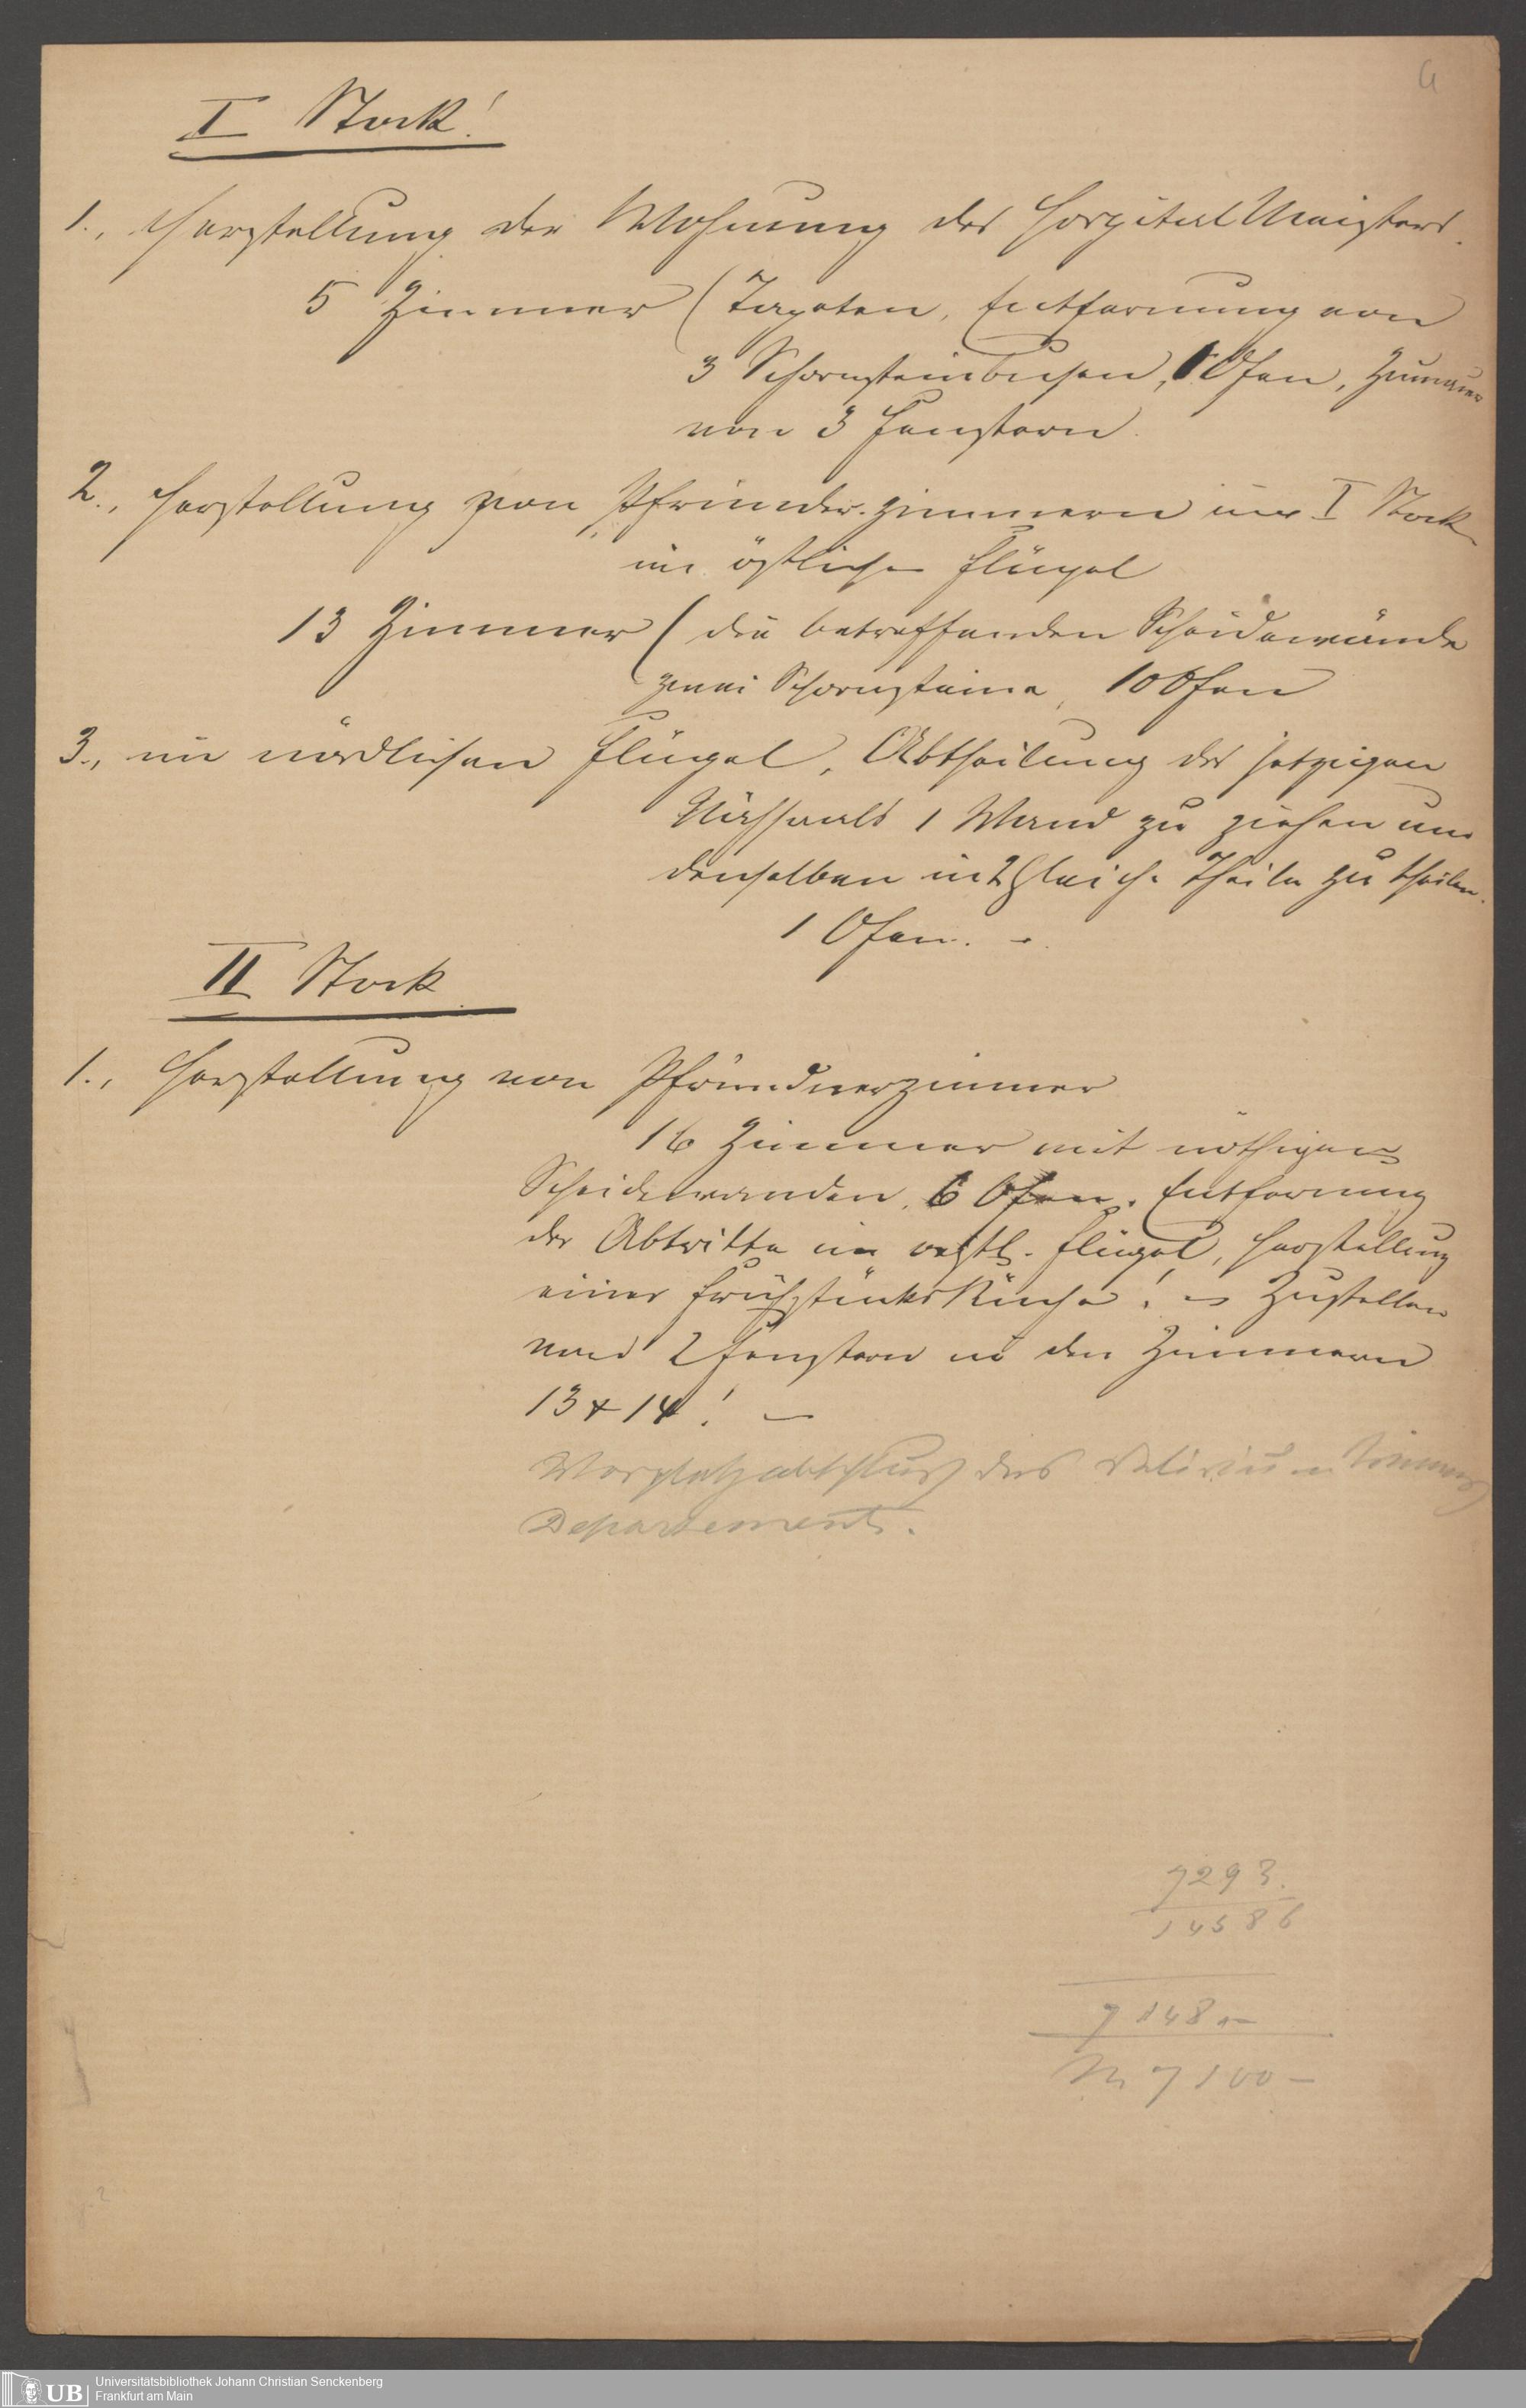 I Stock!
1., Herstellung der Wohnung des Hospital Meisters.
5 Zimmer (Tapeten, Entfernung von
3 Schornsteinbusen, 1 Ofen, Zumauern
von 3 Fenstern.
2., Herstellung von Pfründer-zimmern im I Stock
im östlichen Flügel
13 Zimmer (die betreffenden Scheidewände
zwei Schornsteine, 10 Ofen
3., im nördlichen Flügel, Abtheilung des jetzigen
1 Wand zu ziehen und
denselben in 2 gleiche Theile zu theilen.
1 Ofen. -
II Stock
1., Herstellung von Pfründnerzimmer
16 Zimmer mit nöthigen
Scheidewanden, 6 Ofen. Entfernung
der Abtritte im westl. Flügel, Herstellung
einer Frühstücks Küche! - Zustellen
von 2 Fenstern in den Zimmern
13 + 14! -
Vorplatzabschluss des
Departements.
7293.
14586
7148 -
M 7100 -
UB
Universitätsbibliothek Johann Christian Senckenberg
Frankfurt am Main